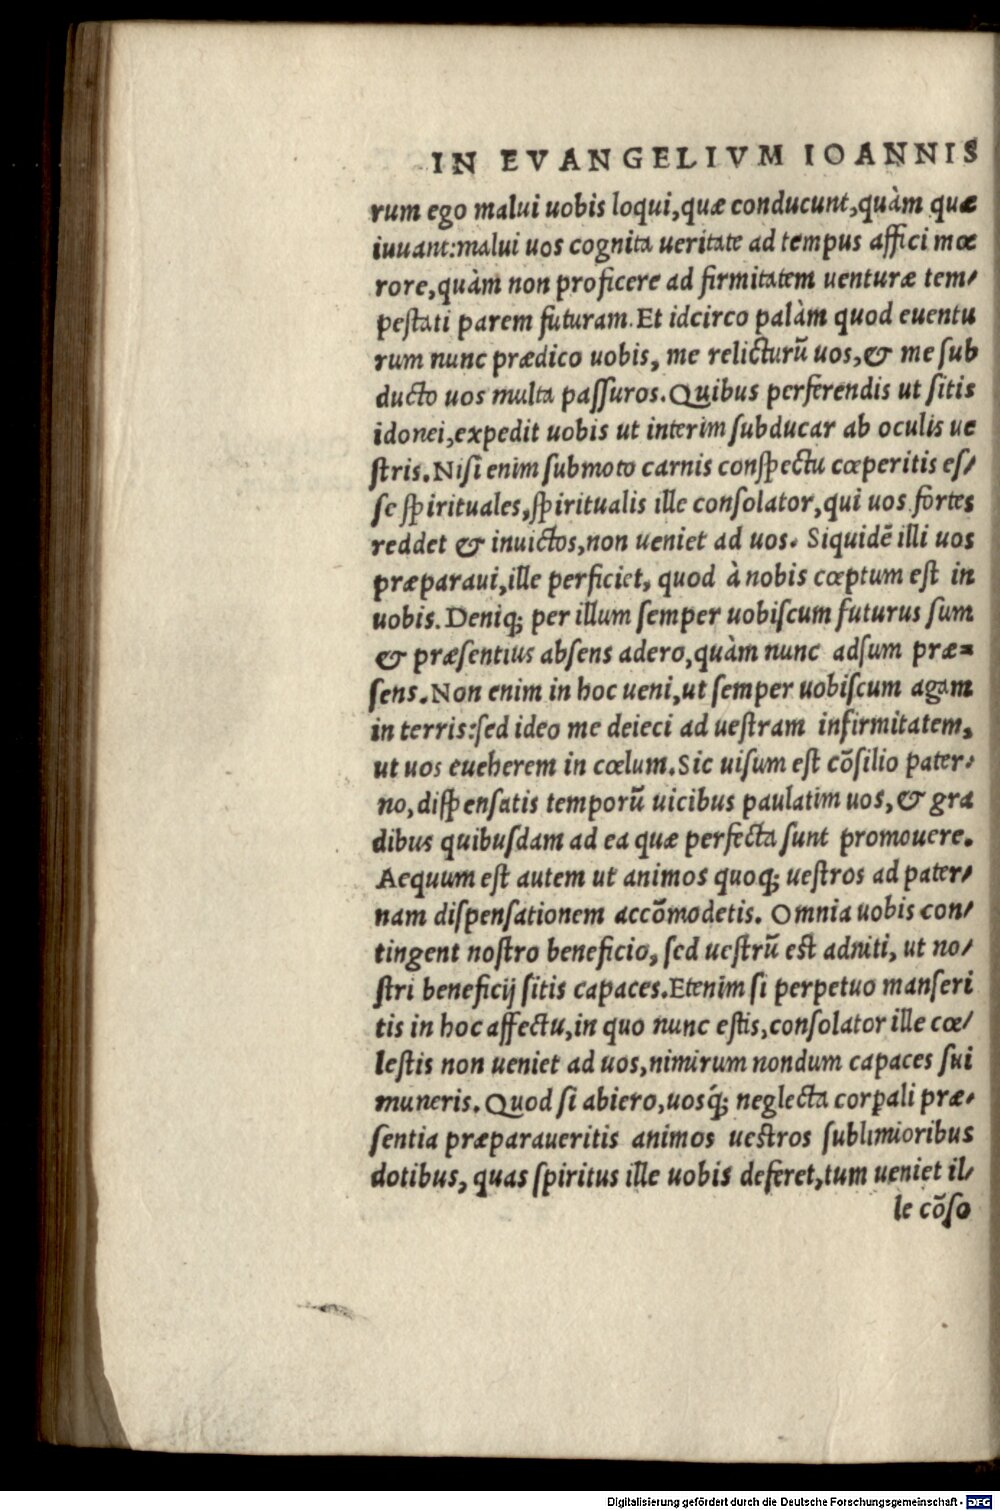 IN EVANGELIVM IOANNIS
rum ego malui uobis loqui,quæ conducunt,quàm quæ
iuuant:malui uos cognita ueritate ad tempus affici mœ
rore,quàm non proficere ad firmitatem uenturæ tem/
peſtati parem futuram.Et idcirco palàm quod euentu
rum nunc prædico uobis, me relicturū uos,& me ſub
ducto uos multa paſſuros.Quibus perferendis ut ſitis
idonei,expedit uobis ut interim ſubducar ab oculis ue
ſtris.Niſi enim ſubmoto carnis conſpectu cœperitis eſ/
ſe ſpirituales,ſpiritualis ille conſolator,qui uos fortes
reddet & inuictos,non ueniet ad uos. Siquidē illi uos
præparaui,ille perficiet, quod à nobis cœptum eſt in
uobis.Deniq; per illum ſemper uobiſcum futurus ſum
& præſentius abſens adero,quàm nunc adſum præ=
ſens.Non enim in hoc ueni,ut ſemper uobiſcum agam
in terris:ſed ideo me deieci ad ueſtram infirmitatem,
ut uos eueherem in cœlum.Sic uiſum eſt cōſilio pater/
no,diſpenſatis temporū uicibus paulatim uos,& gra
dibus quibuſdam ad ea quæ perfecta ſunt promouere.
Aequum eſt autem ut animos quoq; ueſtros ad pater/
nam diſpenſationem accōmodetis. Omnia uobis con/
tingent noſtro beneficio, ſed ueſtrū eſt adniti, ut no/
ſtri beneficij ſitis capaces.Etenim ſi perpetuo manſeri
tis in hoc affectu,in quo nunc eſtis,conſolator ille cœ/
leſtis non ueniet ad uos,nimirum nondum capaces ſui
muneris.Quod ſi abiero,uosq́; neglecta corpali præ/
ſentia præparaueritis animos ueſtros ſublimioribus
dotibus, quas ſpiritus ille uobis deferet,tum ueniet il/
le cōſo
Digitalisierung gefördert durch die Deutsche Forschungsgemeinschaft - DFG